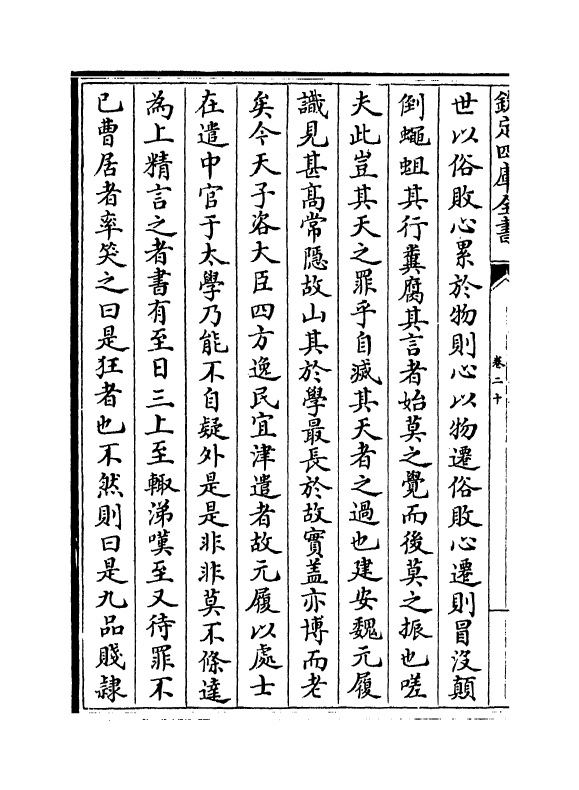 欽定四庫全書
卷二十
世以俗敗心累於物則心以物遷俗敗心遷則冒没顛
倒蠅蛆其行糞腐其言者始莫之覺而後莫之振也嗟
夫此豈其天之罪乎自滅其天者之過也建安魏元履
識見甚髙常隱故山其於學最長於故實盖亦博而老
矣今天子咨大臣四方逸民宜津遣者故元履以處士
在遣中官于太學乃能不自疑外是是非非莫不條達
為上精言之者書有至日三上至輙涕嘆至又待罪不
已曹居者率笑之曰是狂者也不然則曰是九品賤隸